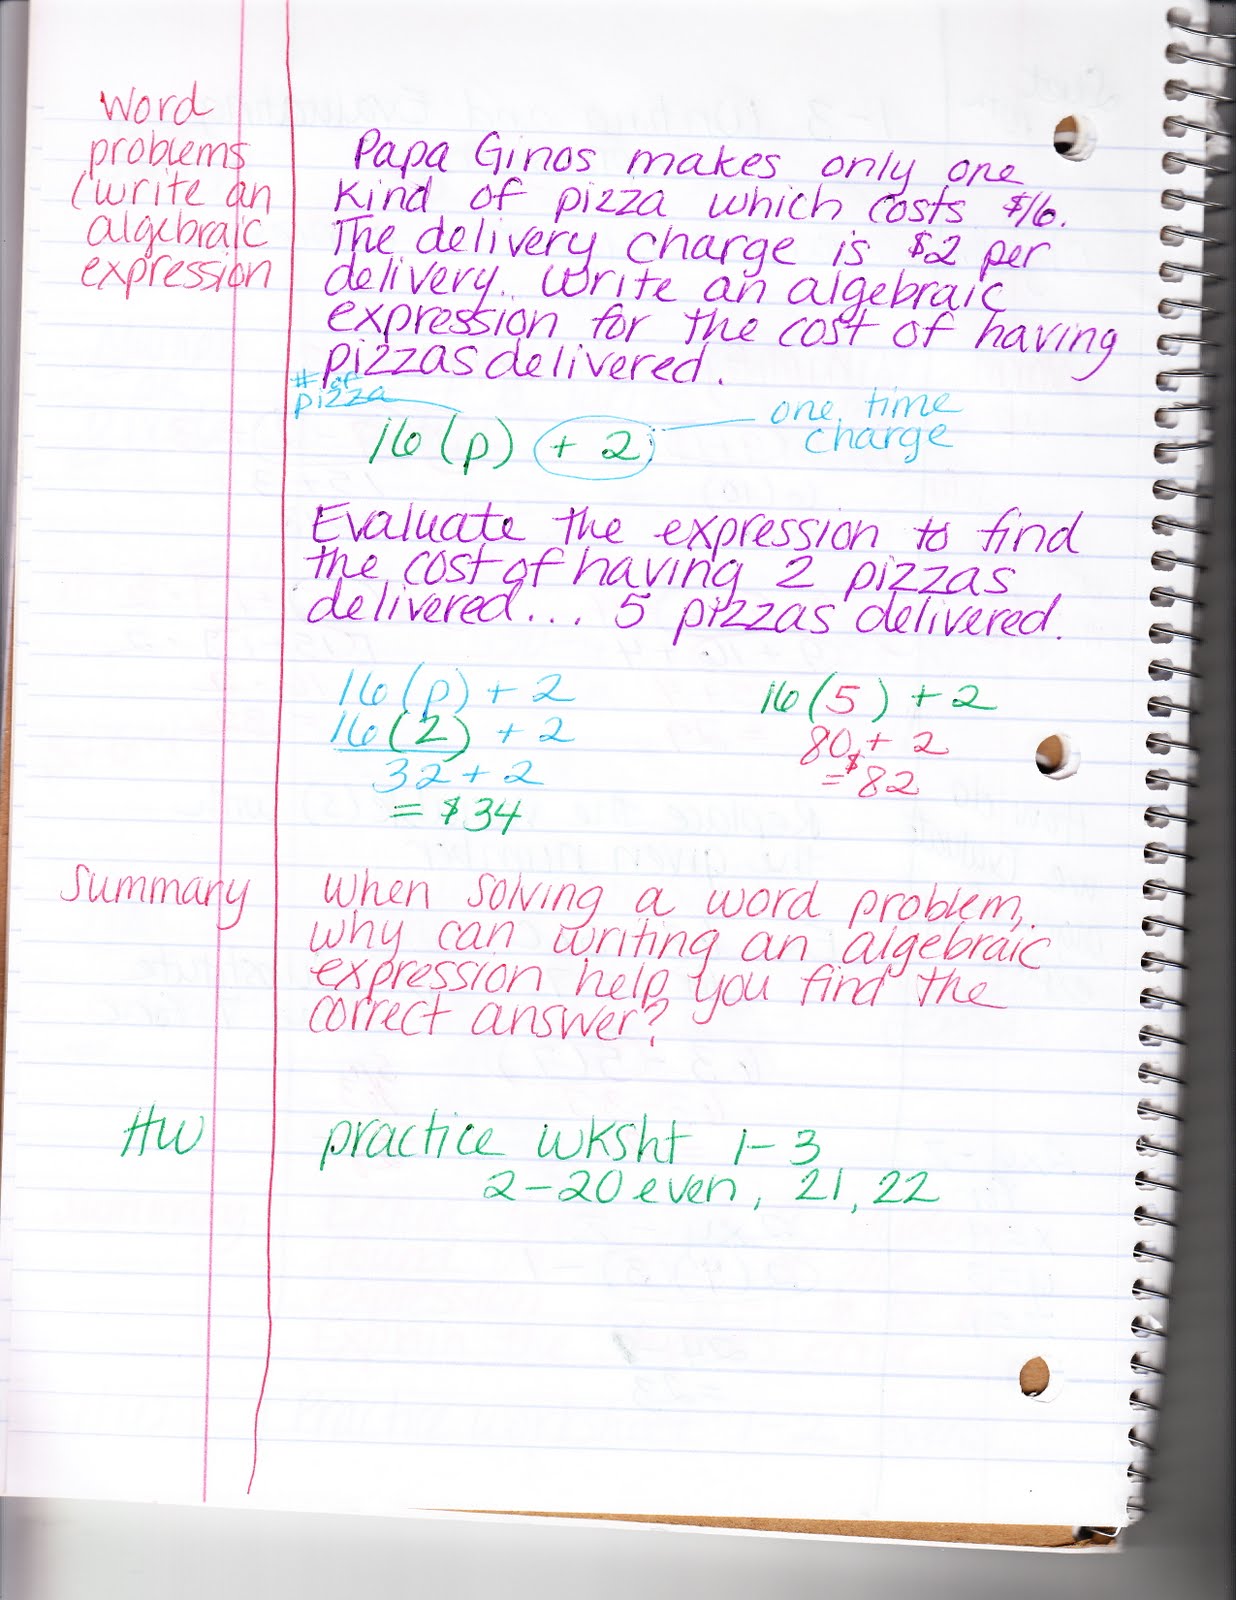 Word
problems
(write an
algebraic
expression
Papa Ginos makes only one
kind of pizza which costs $16.
The delivery charge is $2 per
delivery. Write an algebraic
expression for the cost of having
pizzas delivered.
# of
pizza
one time
charge
16(p) + 2
Evaluate the expression to find
the cost of having 2 pizzas
delivered... 5 pizzas delivered.
16(p) + 2
16(2) + 2
32 + 2
= $34
16(5) + 2
80 + 2
= $82
Summary
When solving a word problem,
why can writing an algebraic
expression help you find the
correct answer?
HW
practice wksht 1-3
2-20 even, 21, 22